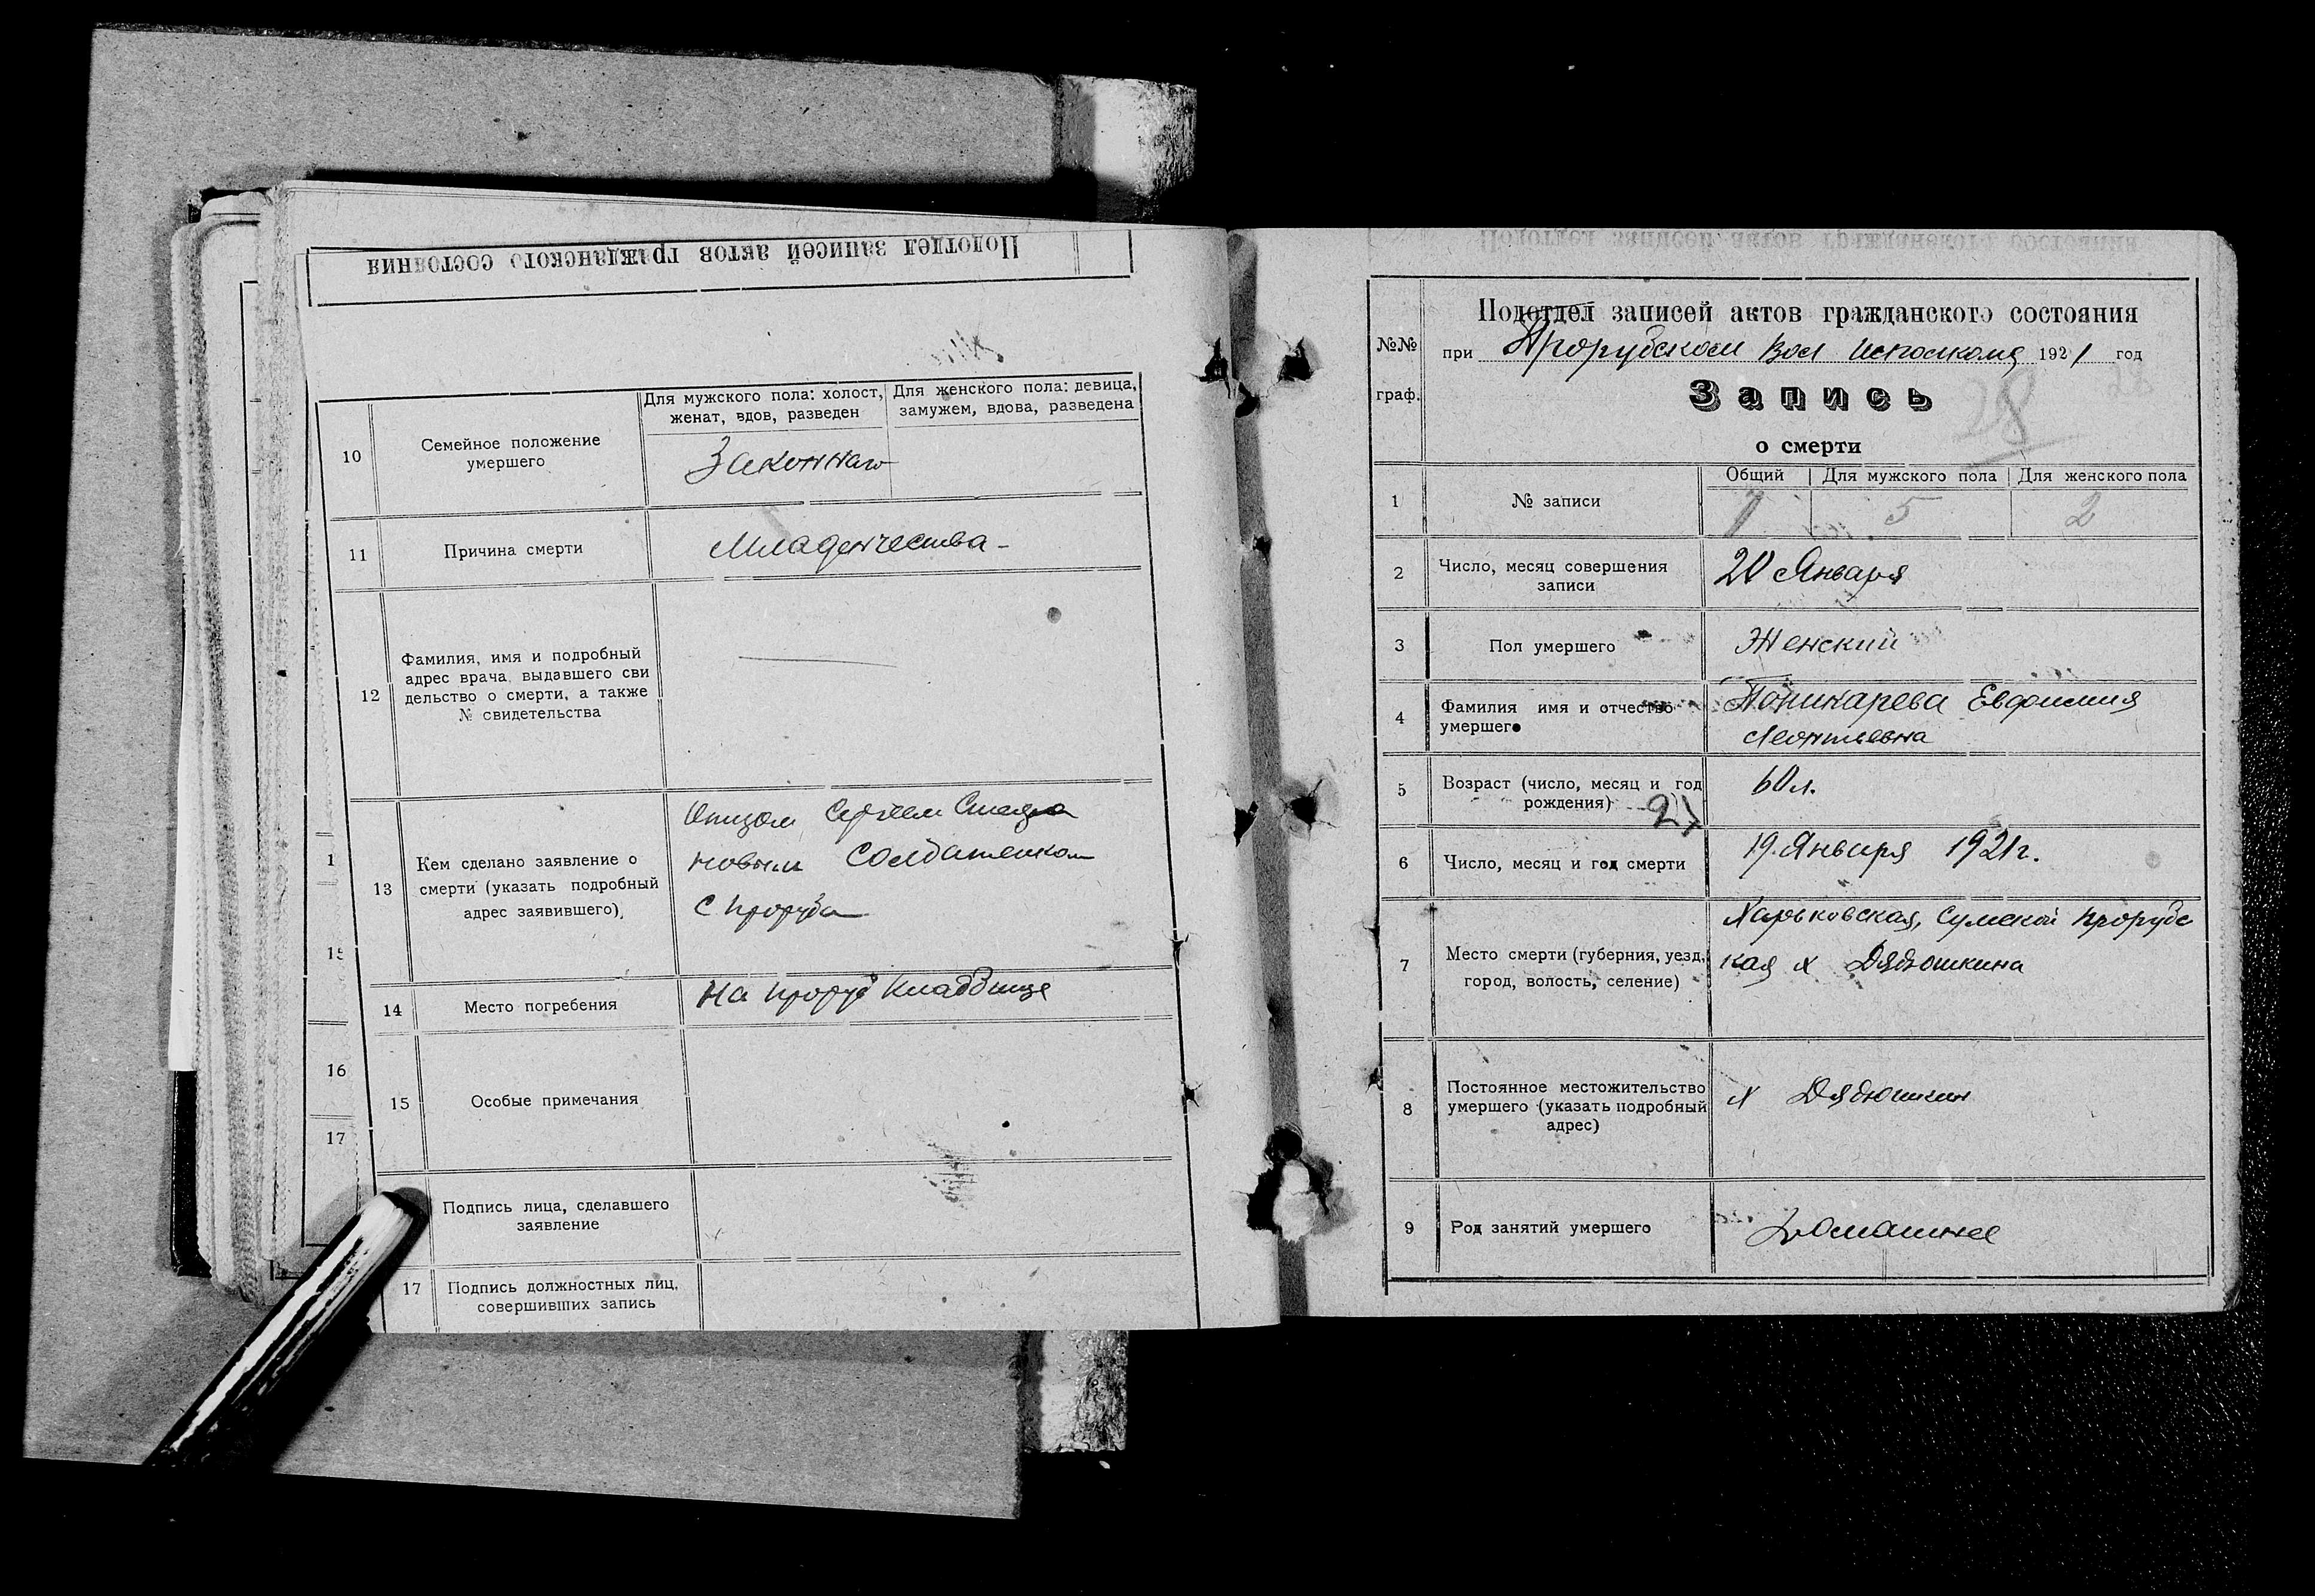 Подотдел записей актов гражданского состояния
Для мужского пола: холост, женат, вдов, разведен
Для женского пола: девица, замужем, вдова, разведена
10 Семейное положение умершего
Законнаго
11 Причина смерти
Младенчества -
12 Фамилия, имя и подробный
адрес врача, выдавшего сви
дельство о смерти, а также
№ свидетельства
13 Кем сделано заявление о
смерти (указать подробный
адрес заявившего)
Отцом Сергеем
новым Солдатенком
С Проруба
14 Место погребения
На Проруб Кладбище
15 Особые примечания
Подпись лица, сделавшего
заявление
17 Подпись должностных лиц,
совершивших запись
1
15
16
17
Подотдел записей актов гражданского состояния
№№ граф.
при Прорубском Вол Исполкоме 1921 год
Запись
28
о смерти
Общий Для мужского пола Для женского пола
1 № записи
7 5 2
2 Число, месяц совершения
записи
20 Января
3 Пол умершего
Женский
4 Фамилия имя и отчество
умершего
Поникарева Евфимия
Леонтьевна
5 Возраст (число, месяц и год
рождения)
60 л.
6 Число, месяц и год смерти
19 Января 1921 г.
7 Место смерти (губерния, уезд,
город, волость, селение)
Харьковская, Сумской Прорубс
кая х Дядюшкина
8 Постоянное местожительство
умершего (указать подробный
адрес)
х Дядюшкин
9 Род занятий умершего
Домашнее